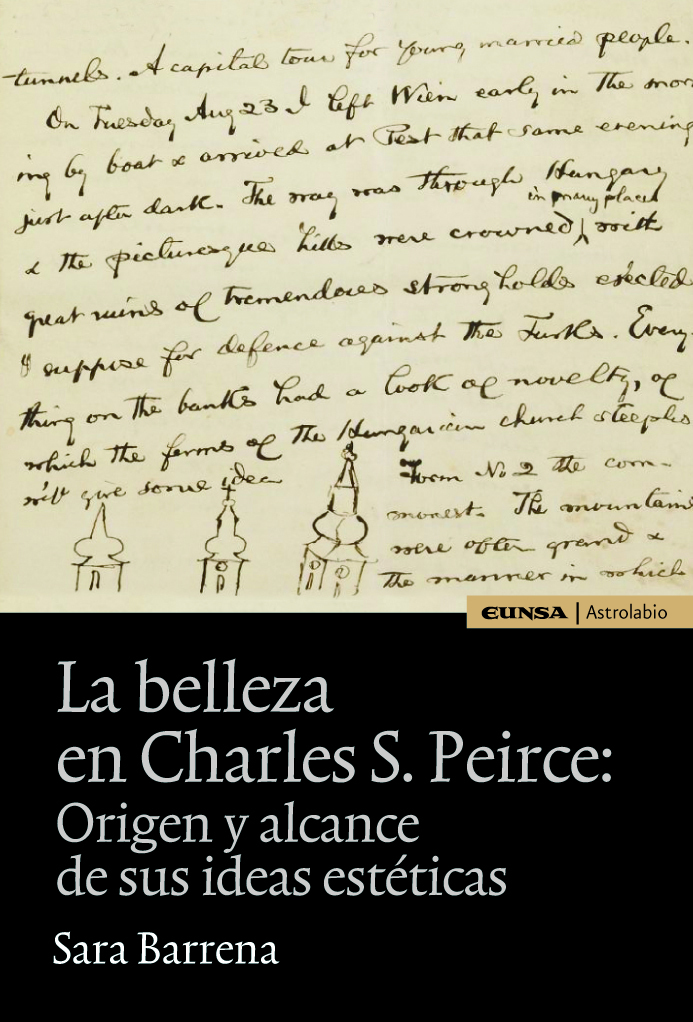 tunnels. A capital tour for young married people.
On Tuesday Aug 23 I left Wien early in the morn
ing by boat & arrived at Pest that same evening
just after dark. The way was through Hungary
in many places
& the picturesque hills were crowned with
great ruins of tremendous strongholds erected
I suppose for defence against the Turks. Every
thing on the banks had a look of novelty, of
which the forms of the Hungarian church steeples
will give some idea
Form No 2 the com-
monest. The mountains
were often grand &
the manner in which
EUNSA | Astrolabio
La belleza
en Charles S. Peirce:
Origen y alcance
de sus ideas estéticas
Sara Barrena